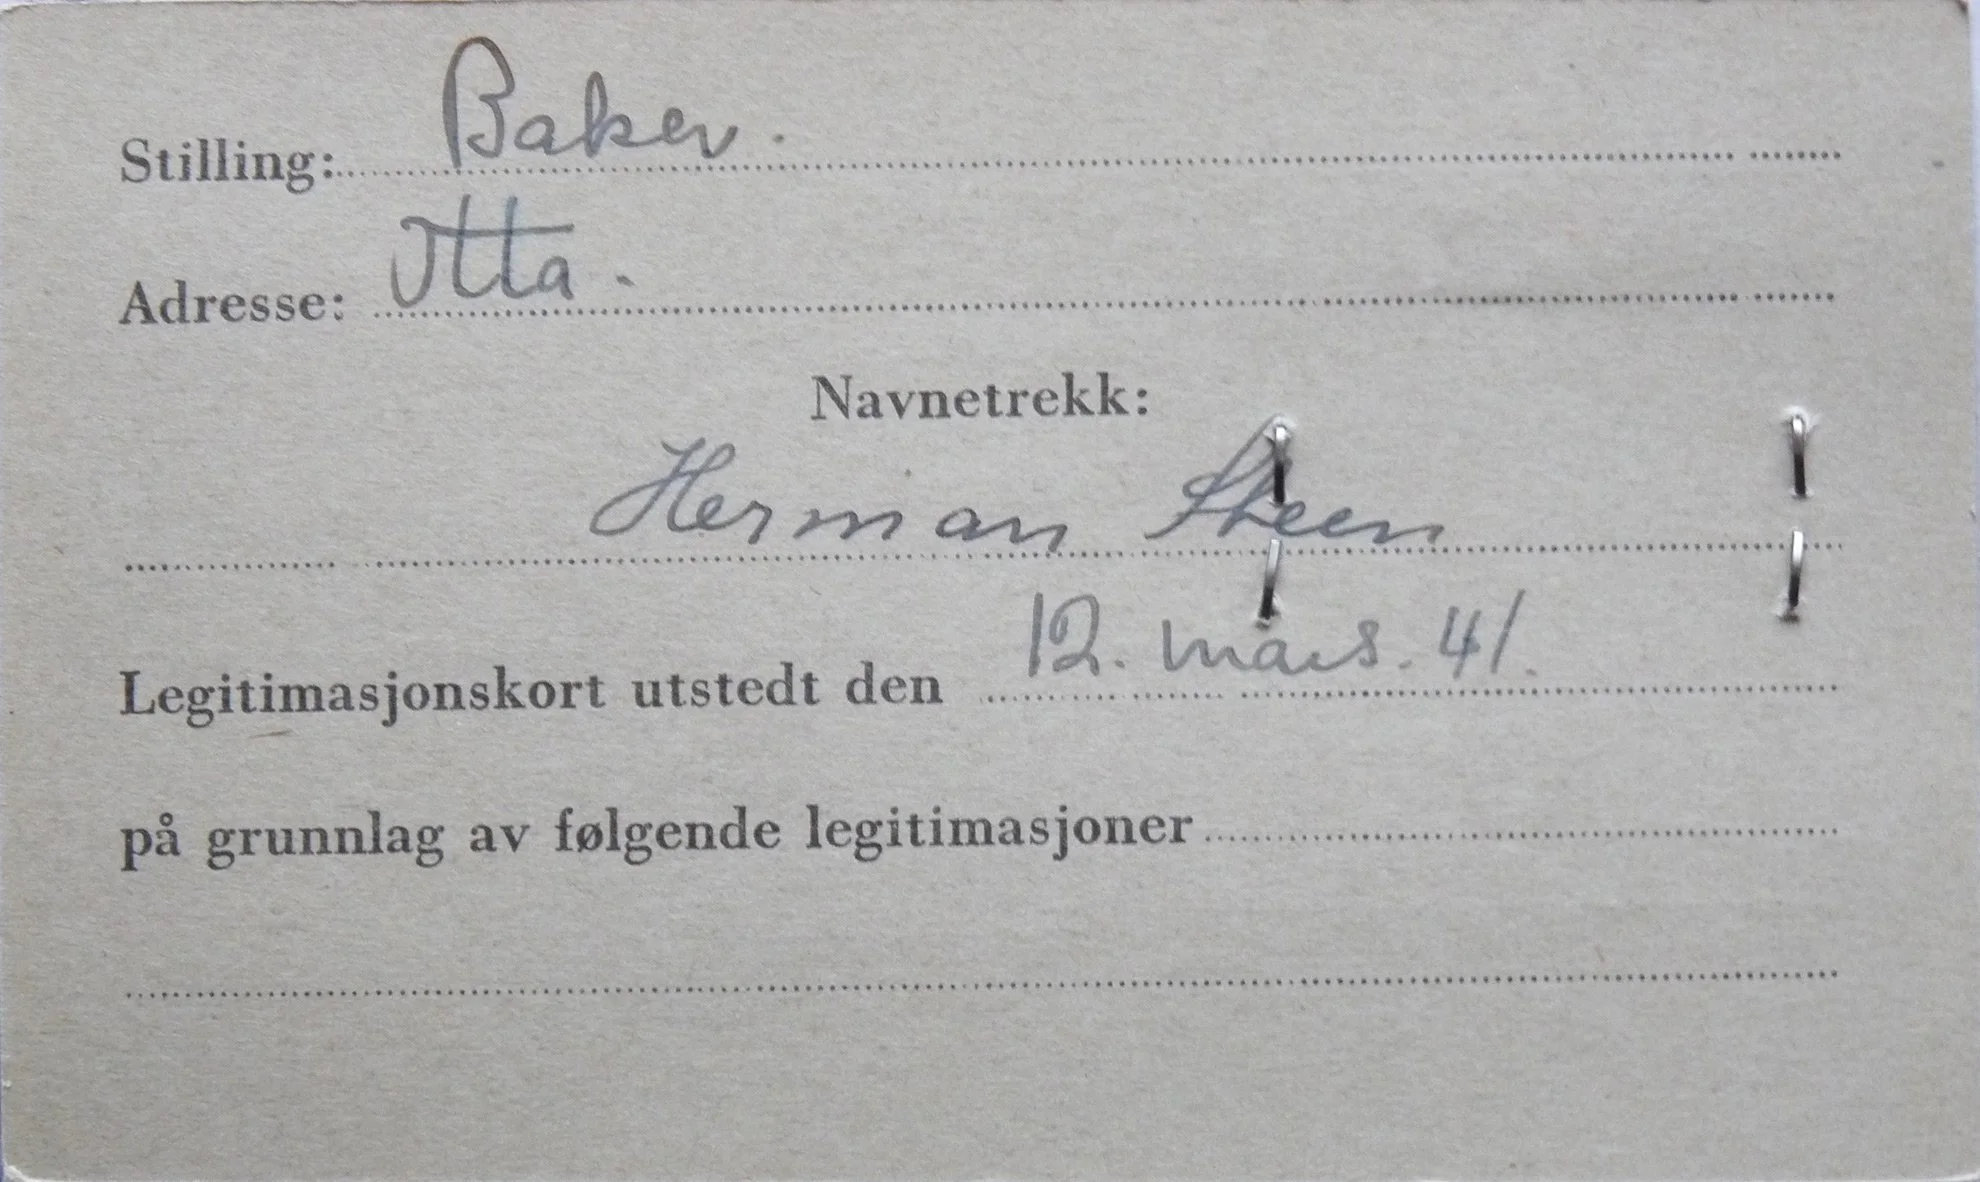 Stilling: Baker.
Adresse: Otta.
Navnetrekk:
Herman Steen
Legitimasjonskort utstedt den 12. mars. 41.
på grunnlag av følgende legitimasjoner